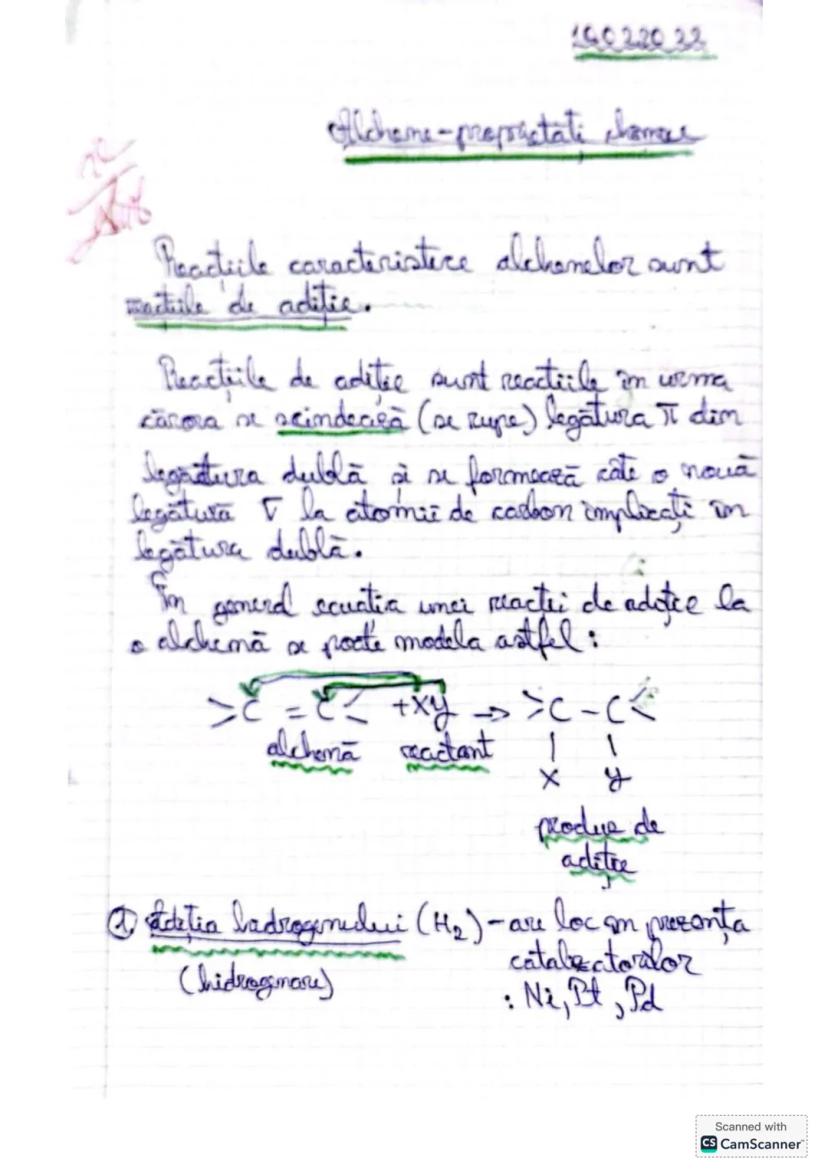 14.02.2022
Alchene-proprietăți chimice
Reacțiile caracteristice alchenelor sunt
reacțiile de adiție.
Reacțiile de adiție sunt reacțiile în urma
cărora se scindează (se rupe) legătura π din
legătura dublă și se formează câte o nouă
legătură σ la atomii de carbon implicați în
legătura dublă.
În general ecuația unei reacții de adiție la
o alchenă se poate modela astfel:
>C = C< + XY → >C - C<
alchenă reactant | |
X Y
produs de
adiție
① Adiția hidrogenului (H₂) - are loc în prezența
(hidrogenare) catalizatorilor
: Ni, Pt, Pd
Scanned with
CS CamScanner